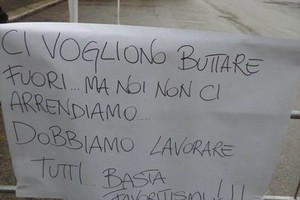 CI VOGLIONO BUTTARE
FUORI... MA NOI NON CI
ARRENDIAMO...
DOBBIAMO LAVORARE
TUTTI... BASTA
FAVORITISMI!!!